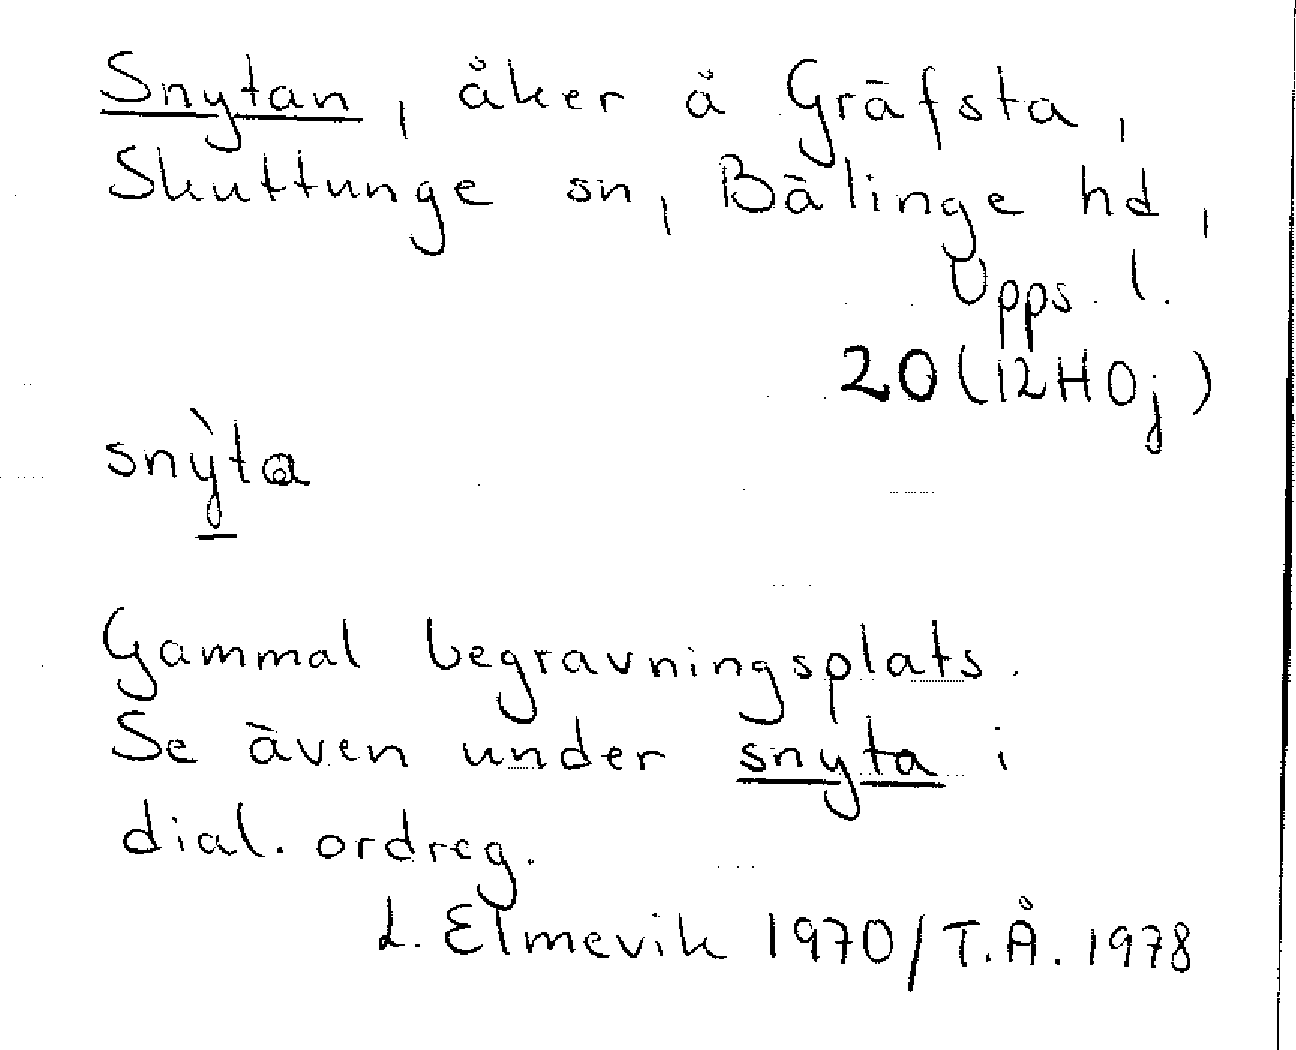 Snytan, åker å Gräfsta,
Skuttunge sn, Bälinge hd,
Upps. l.
20 (12H0j)
snỳ̠ta
Gammal begravningsplats.
Se även under snyta i
dial. ordreg.
L. Elmevik 1970/T.Å. 1978